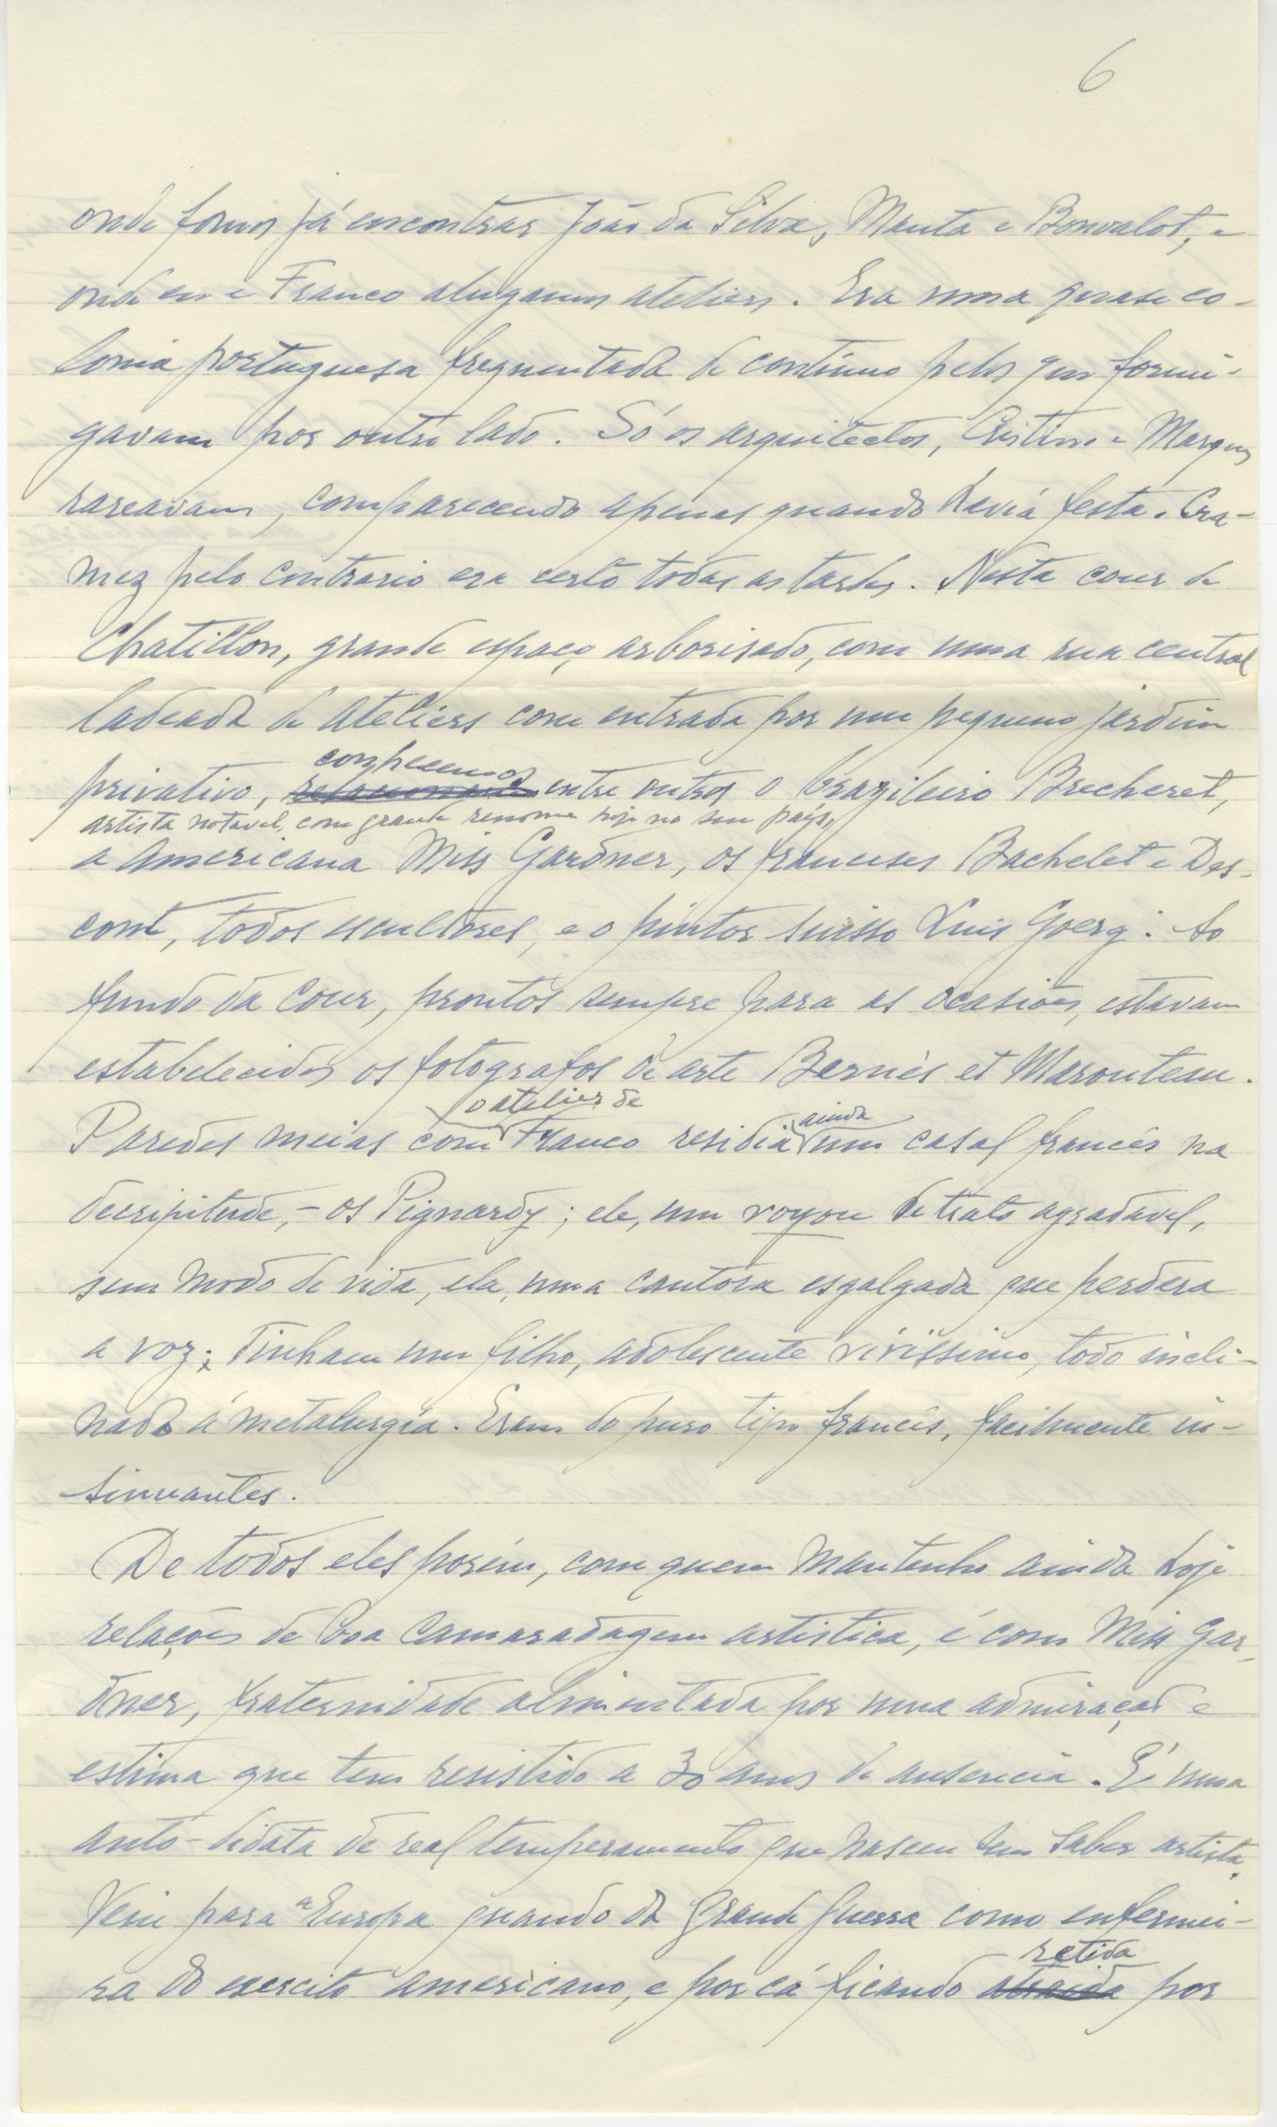 6
onde fomos já encontrar João da Silva, Manta e Bonvalot, e
onde eu e Franco alugamos ateliers. Era uma quase co-
lonia portuguesa frequentada de contínuo pelos que formi-
gavam por outro lado. Só os arquitectos, Cristino e Marques
rareavam, comparecendo apenas quando havia festa. Cra-
mez pelo contrario era certo todas as tardes. Nesta cour de
Chatillon, grande espaço arborisado, com uma rua central
ladeada de ateliers com entrada por um pequeno jardim
conhecemos
privativo, entre outros o brazileiro Brecheret,
artista notavel, com grande renome hoje no seu país,
a americana Miss Gardner, os franceses Bachelet e Des-
cont, todos escultores, e o pintor suisso Luis Goerg. Ao
fundo da cour, prontos sempre para as ocasiões, estavam
estabelecidos os fotografos de arte Bernés et Marouteau.
o atelier de
ainda
Paredes meias com Franco residia um casal francês na
decripitude, - os Pignardy; ele, um voyou de trato agradavel,
sem modo de vida, ela, uma cantora esgalgada que perdera
a voz; Tinham um filho, adolescente vivissimo, todo incli-
nado á metalurgia. Eram do puro tipo francês, facilmente in-
sinuantes.
De todos eles porém, com quem mantenho ainda hoje
relações de boa camaradagem artistica, é com Miss Gar-
dner, fraternidade alimentada por uma admiração e
estima que tem resistido a 30 anos de ausencia. É uma
auto-didata de real temperamento que nasceu sem saber artista.
Veiu para a Europa quando da Grande Guerra como enfermei-
retida
ra do exercito americano, e por cá ficando atraida por